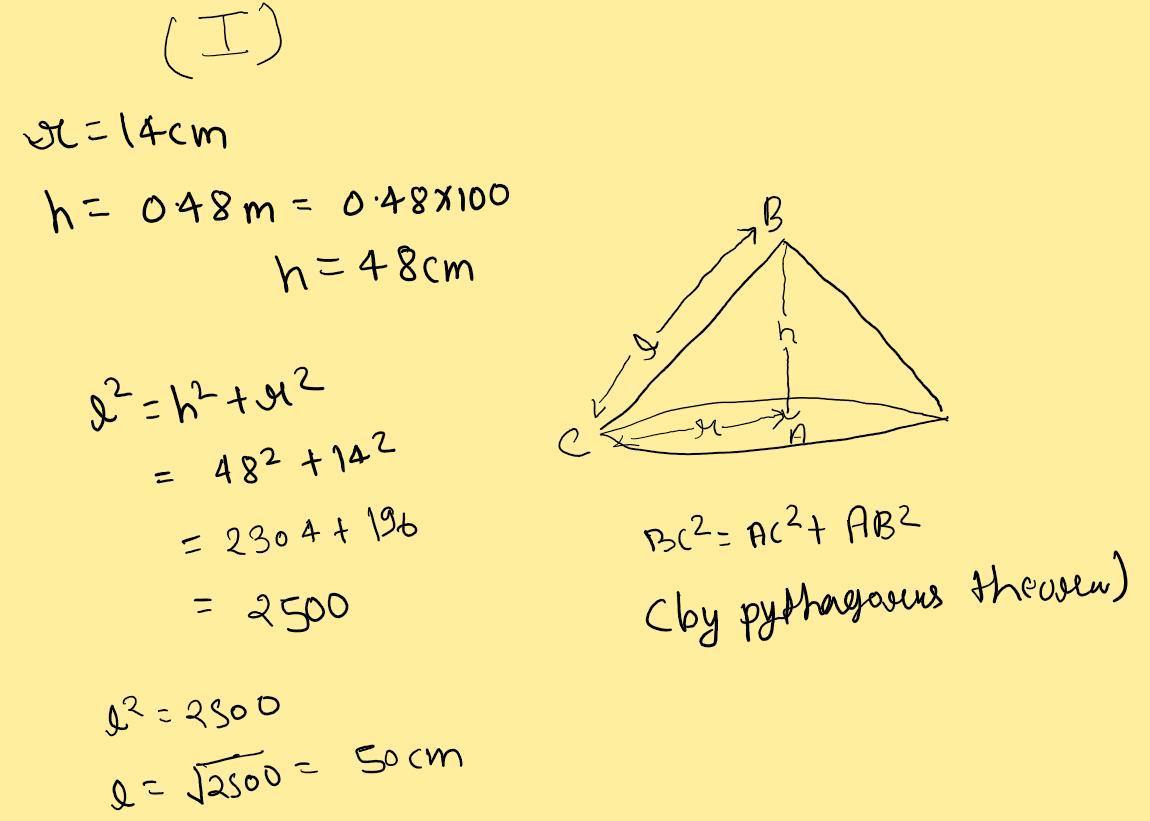 (I)
r = 14cm
h = 0.48m = 0.48×100
h = 48cm
l² = h² + r²
= 48² + 14²
= 2304 + 196
= 2500
l² = 2500
l = √2500 = 50cm
B
l
h
r
C
A
BC² = AC² + AB²
(by pythagorus theorem)